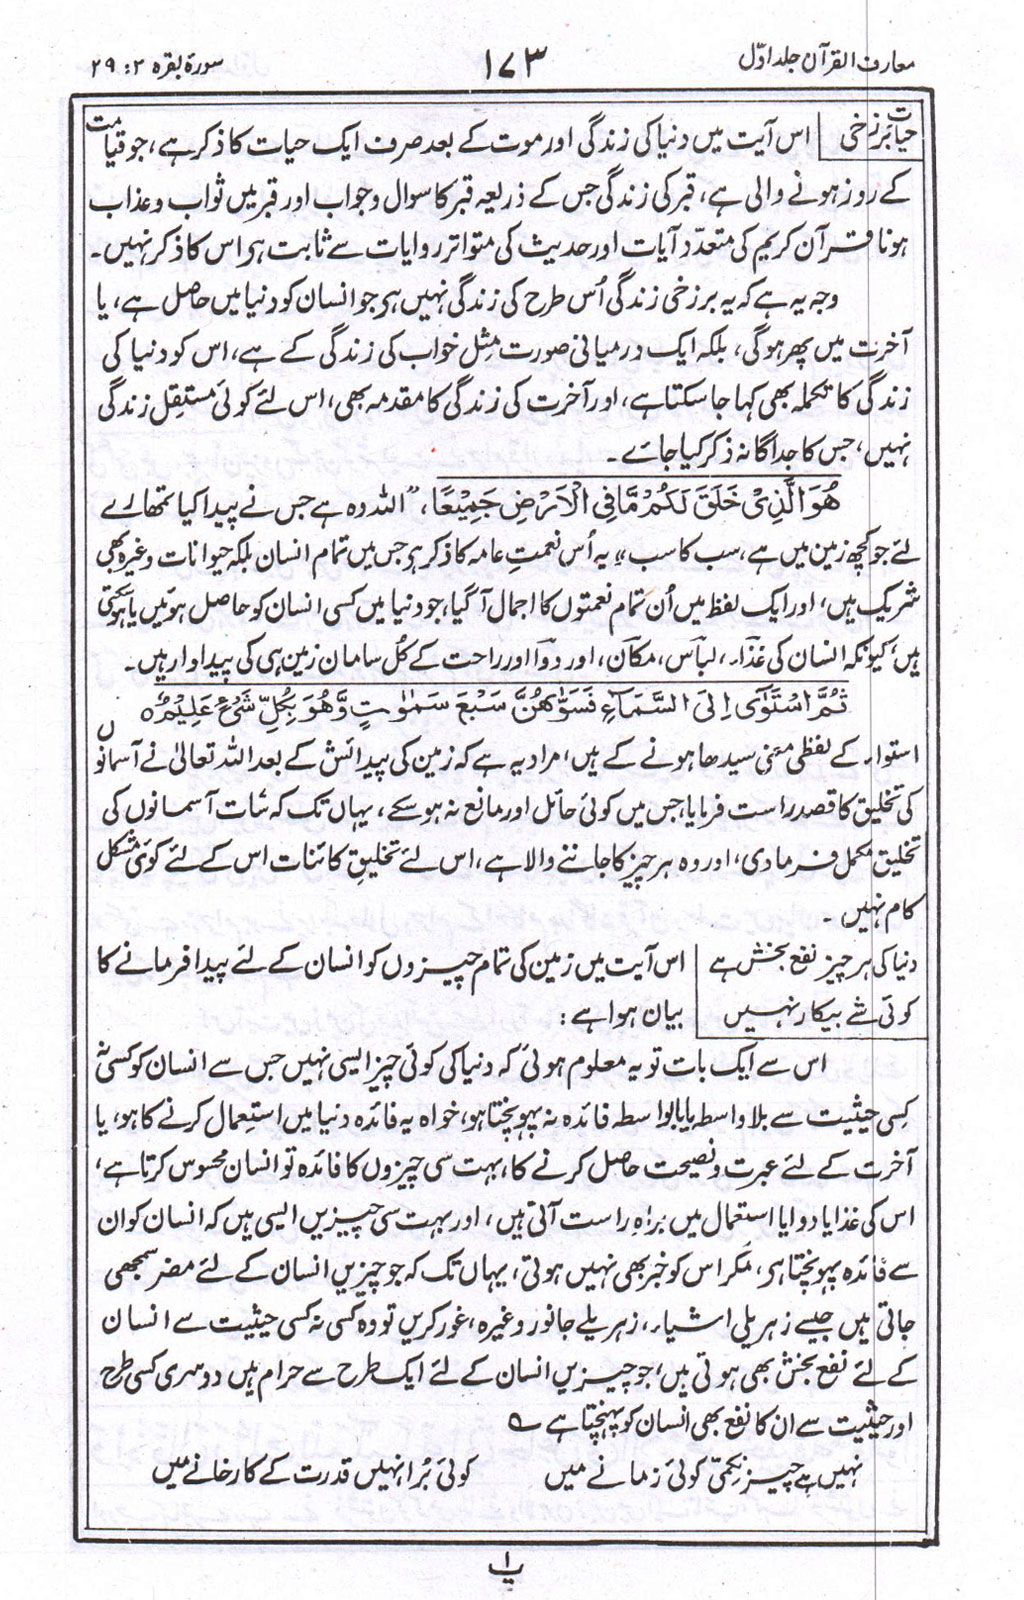 معارف القرآن جلد اوّل
۱۷۳
سورۂ بقرہ ۲ : ۲۹
حیات برزخی
اس آیت میں دنیا کی زندگی اور موت کے بعد صرف ایک حیات کا ذکر ہے، جو قیامت
کے روز ہونے والی ہے، قبر کی زندگی جس کے ذریعہ قبر کا سوال و جواب اور قبر میں ثواب و عذاب
ہونا قرآن کریم کی متعدّد آیات اور حدیث کی متواتر روایات سے ثابت ہر اس کا ذکر نہیں۔
وجہ یہ ہے کہ یہ برزخی زندگی اُس طرح کی زندگی نہیں ہر جو انسان کو دنیا میں حاصل ہے، یا
آخرت میں پھر ہوگی، بلکہ ایک درمیانی صورت مِثل خواب کی زندگی کے ہے، اس کو دنیا کی
زندگی کا تکملہ بھی کہا جاسکتا ہے، اور آخرت کی زندگی کا مقدمہ بھی، اس لئے کوئی مستقِل زندگی
نہیں، جس کا جداگانہ ذکر کیا جائے۔
هُوَ الَّذِيْ خَلَقَ لَكُمْ مَّا فِي الْاَرْضِ جَمِيْعًا، "اللہ وہ ہے جس نے پیدا کیا تمھارے
لئے جو کچھ زمین میں ہے، سب کا سب" یہ اُس نعمتِ عامہ کا ذکر ہر جس میں تمام انسان بلکہ حیوانات وغیرہ بھی
شریک ہیں، اور ایک لفظ میں اُن تمام نعمتوں کا اجمال آگیا، جو دنیا میں کسی انسان کو حاصل ہوئیں یا ہوسکتی
ہیں، کیونکہ انسان کی غذاء، لباس، مکان، اور دوا اور راحت کے کُل سامان زمین ہی کی پیداوار ہیں۔
ثُمَّ اسْتَوٰٓى اِلَى السَّمَآءِ فَسَوّٰىهُنَّ سَبْعَ سَمٰوٰتٍ وَّهُوَ بِكُلِّ شَيْءٍ عَلِيْمٌ ٥
استواء کے لفظی معنی سیدھا ہونے کے ہیں، مراد یہ ہے کہ زمین کی پیدائش کے بعد اللہ تعالیٰ نے آسمانوں
کی تخلیق کا قصد راست فرمایا، جس میں کوئی حائل اور مانع نہ ہوسکے، یہاں تک کہ سات آسمانوں کی
تخلیق مکمل فرمادی، اور وہ ہر چیز کا جاننے والا ہے، اس لئے تخلیقِ کائنات اس کے لئے کوئی مشکل
کام نہیں۔
دنیا کی ہر چیز نفع بخش ہے
کوئی شے بیکار نہیں
اس آیت میں زمین کی تمام چیزوں کو انسان کے لئے پیدا فرمانے کا
بیان ہوا ہے:
اس سے ایک بات تو یہ معلوم ہوئی کہ دنیا کی کوئی چیز ایسی نہیں جس سے انسان کو کسی نہ
کسی حیثیت سے بلاواسطہ یا بالواسطہ فائدہ نہ پہونچتا ہو، خواہ یہ فائدہ دنیا میں استعمال کرنے کا ہو، یا
آخرت کے لئے عبرت و نصیحت حاصل کرنے کا، بہت سی چیزوں کا فائدہ تو انسان محسوس کرتا ہے،
اس کی غذا یا دوا یا استعمال میں براہِ راست آتی ہیں، اور بہت سی چیزیں ایسی ہیں کہ انسان کو ان
سے فائدہ پہونچتا ہر، مگر اس کو خبر بھی نہیں ہوتی، یہاں تک کہ جو چیزیں انسان کے لئے مضر سمجھی
جاتی ہیں جیسے زہریلی اشیاء، زہریلے جانور وغیرہ، غور کریں تو وہ کسی نہ کسی حیثیت سے انسان
کے لئے نفع بخش بھی ہوتی ہیں، جو چیزیں انسان کے لئے ایک طرح سے حرام ہیں دوسری کسی طرح
اور حیثیت سے ان کا نفع بھی انسان کو پہنچتا ہے ؎
نہیں ہے چیز نکمّی کوئی زمانے میں
کوئی بُرا نہیں قدرت کے کارخانے میں
پا